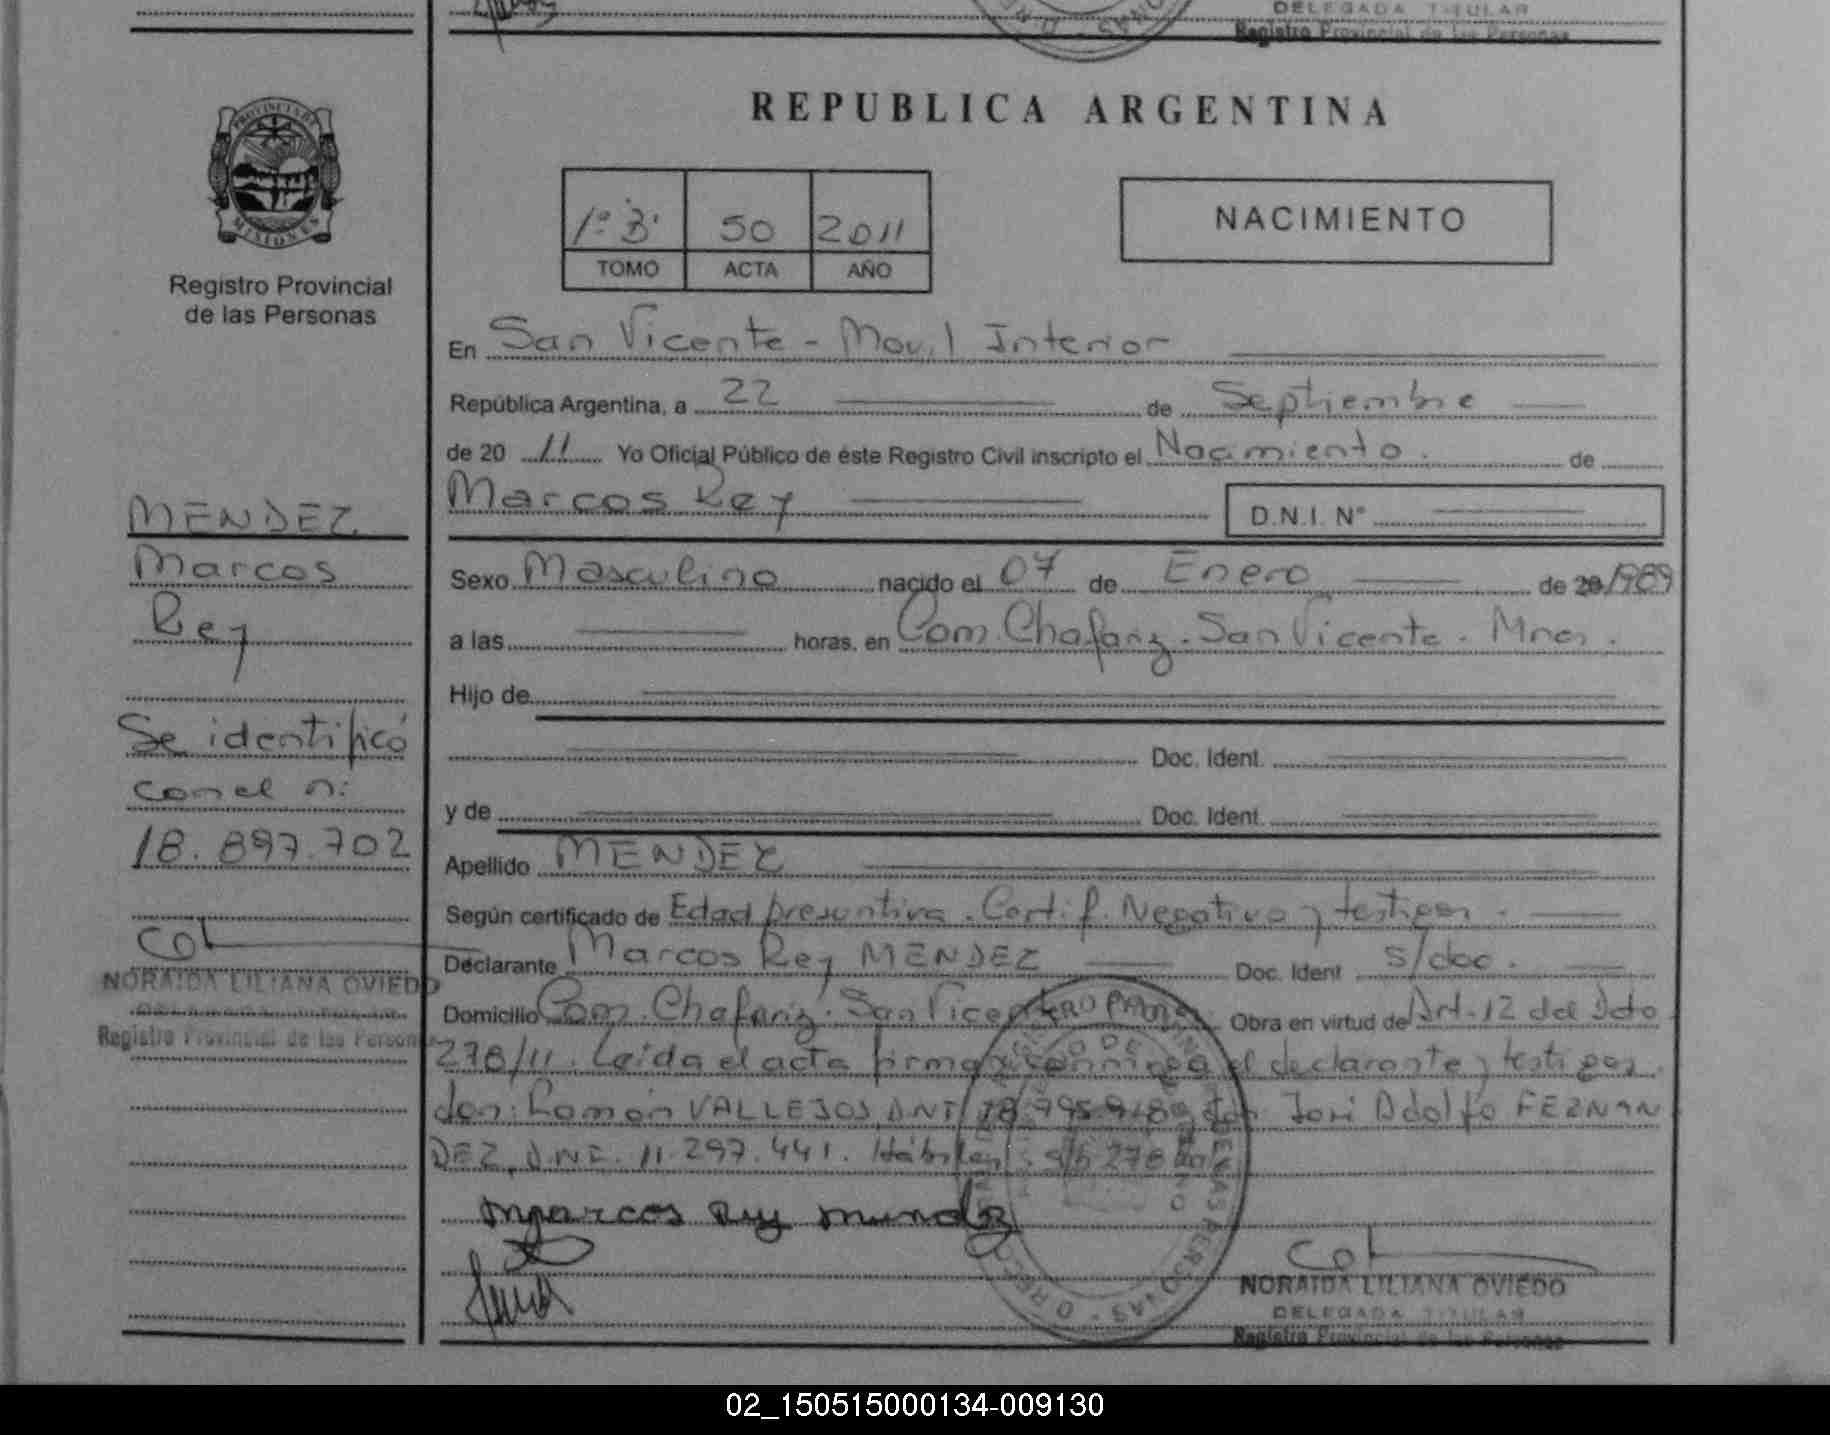 DELEGADA TITULAR
Registro Provincial de las Personas
PROVINCIA DE
MISIONES
Registro Provincial
de las Personas
REPUBLICA ARGENTINA
1º B' 50 2011
TOMO ACTA AÑO
NACIMIENTO
En San Vicente - Movil Interior
República Argentina, a 22 de Septiembre
de 20 11 Yo Oficial Público de éste Registro Civil inscripto el Nacimiento. de
Marcos Rey D.N.I. Nº
Sexo Masculino nacido el 07 de Enero de 20 1989
a las horas, en Com. Chafariz. San Vicente. Mnes.
Hijo de
Doc. Ident.
y de Doc. Ident.
Apellido MENDEZ
Según certificado de Edad presuntiva. Certif. Negativo y testigos.
Declarante Marcos Rey MENDEZ Doc. Ident s/doc.
Domicilio Com. Chafariz. San Vicente Obra en virtud de Art. 12 del Dcto
278/11. Leida el acta firma conmigo el declarante y testigos
don: Ramón VALLEJOS DNI don José Adolfo FERNAN
DEZ, D.N.I. 11.297.441. Hábiles s/ 278
Marcos Rey
NORAIDA LILIANA OVIEDO
DELEGADA TITULAR
Registro Provincial de las Personas
MENDEZ
Marcos
Rey
Se identificó
con el n:
18.897.702
NORAIDA LILIANA OVIEDO
Registro Provincial de las Personas
02_150515000134-009130